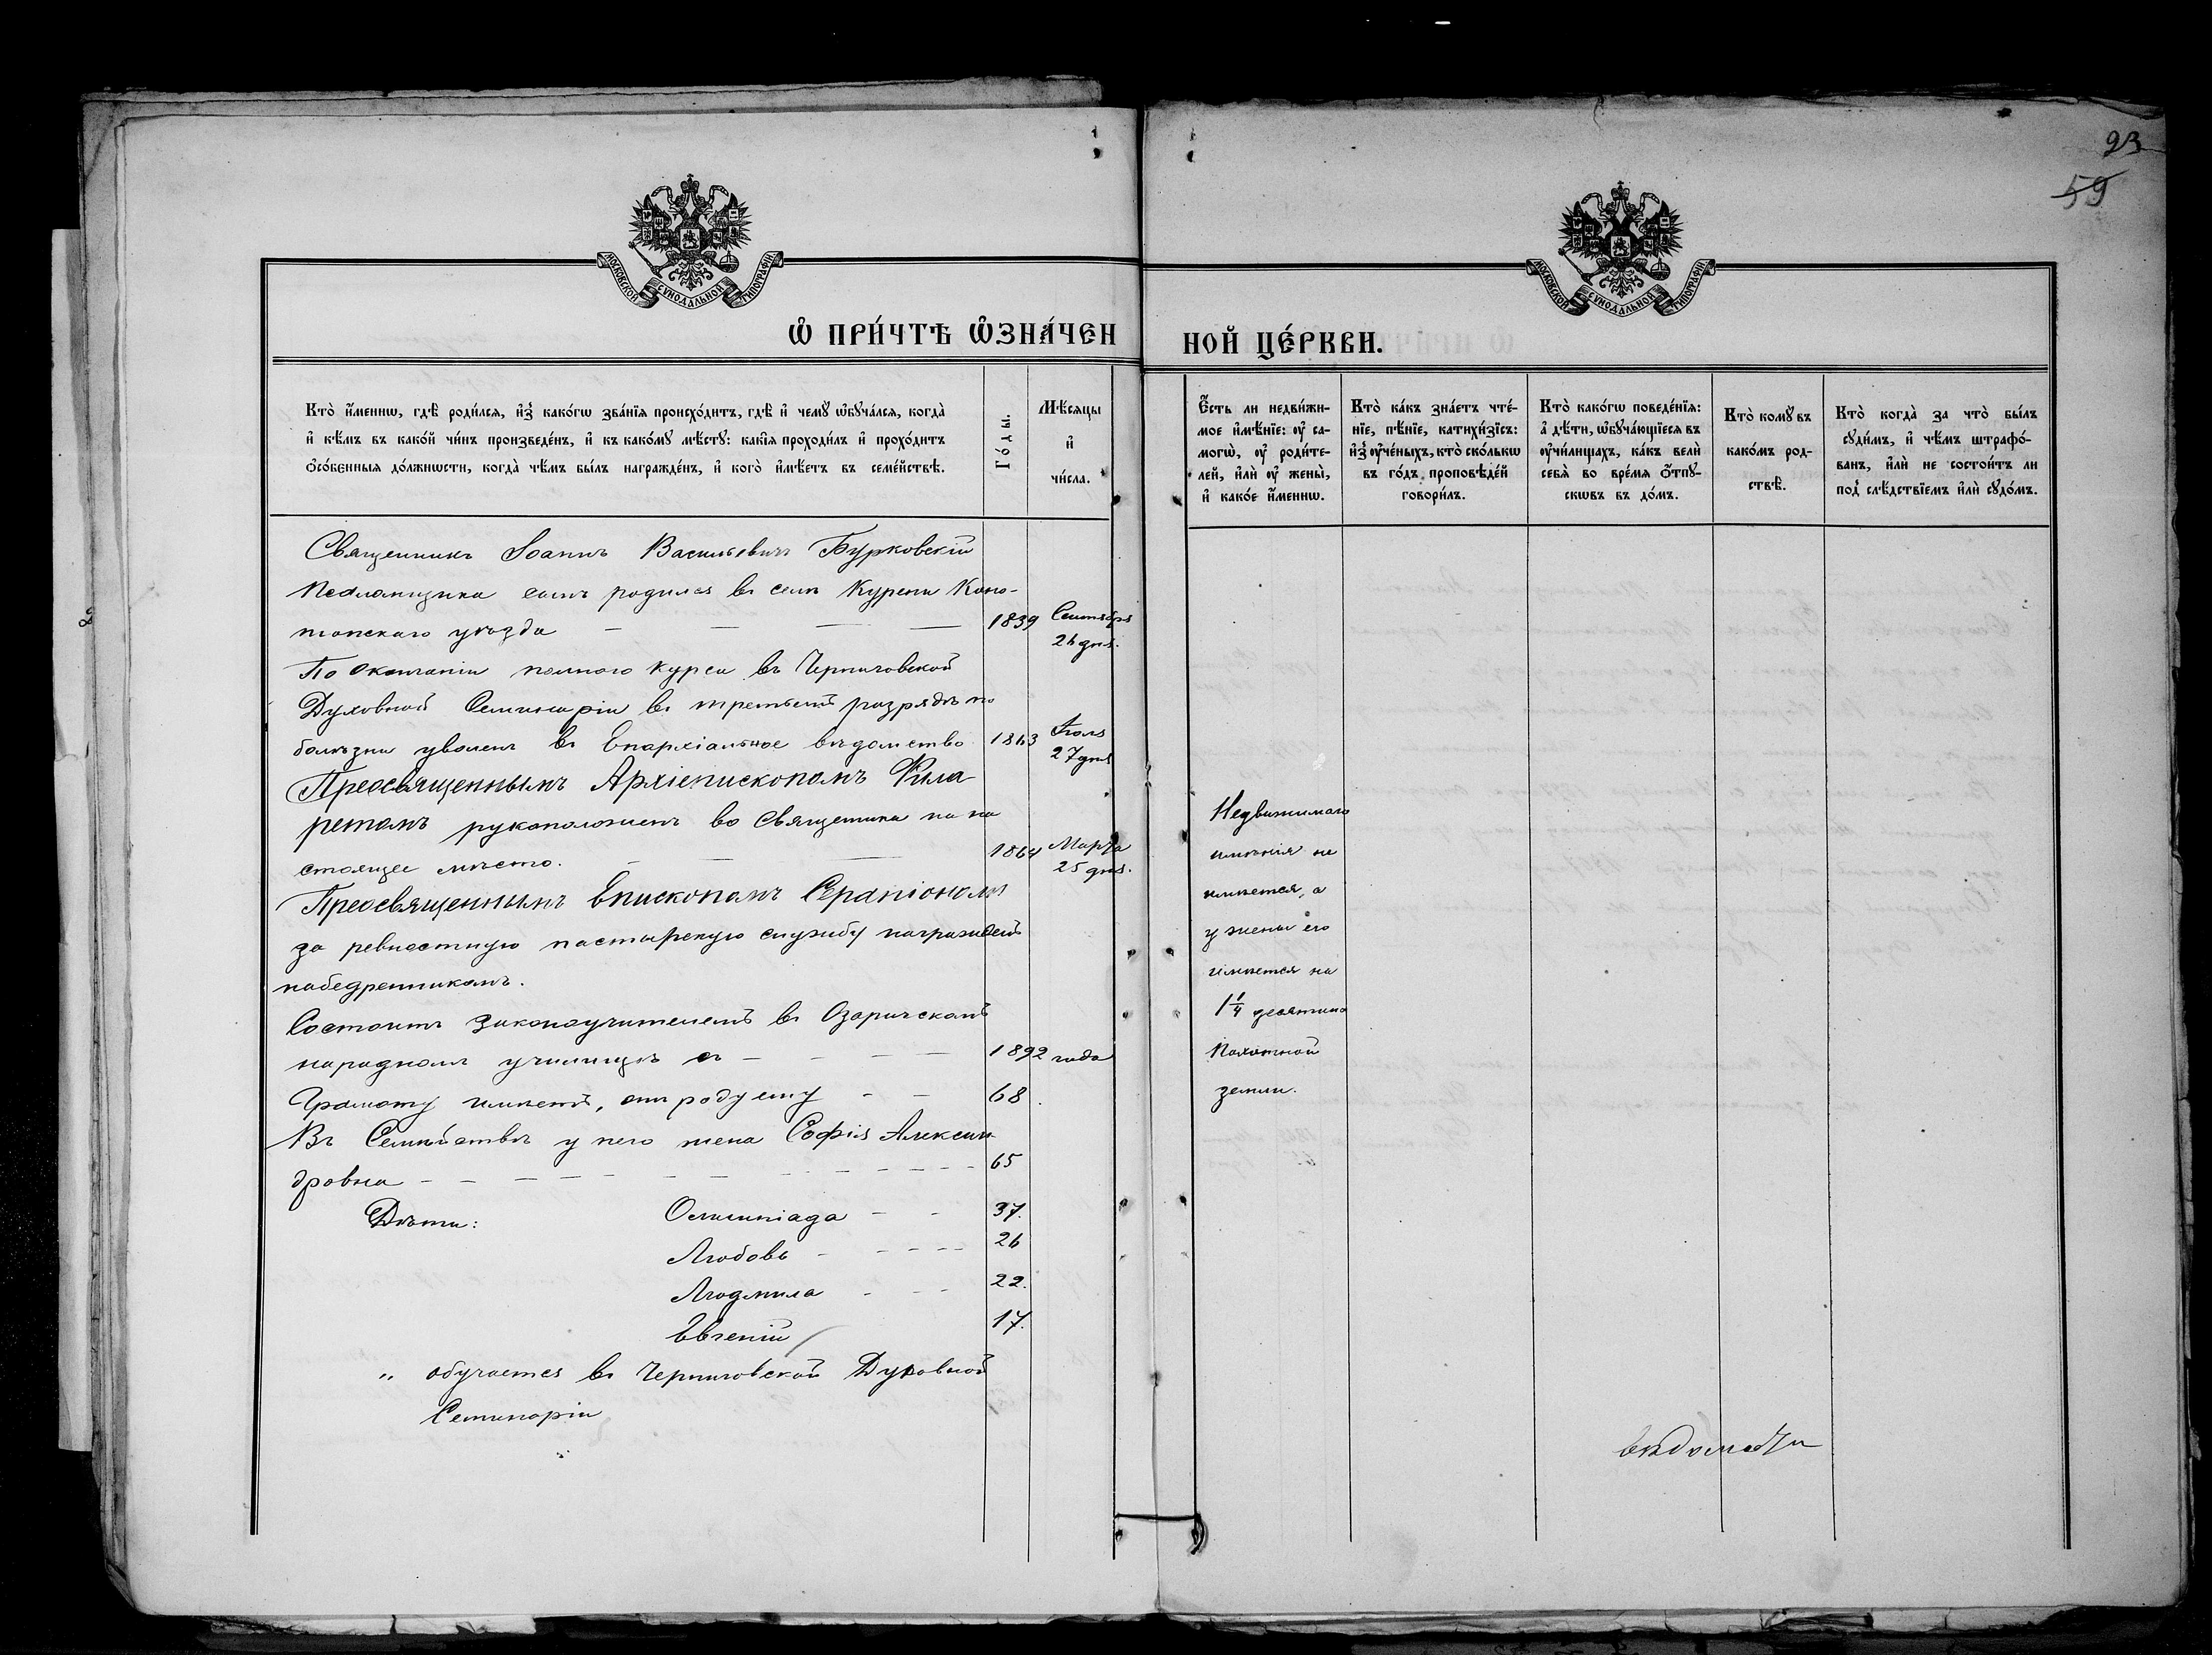 93
59
МОСКОВСКОЙ СѴНОДАЛЬНОЙ ТИПОГРАФІИ
МОСКОВСКОЙ СѴНОДАЛЬНОЙ ТИПОГРАФІИ
Ѡ҆ ПРИ́ЧТѢ Ѡ҆ЗНА́ЧЕН
НОЙ ЦЕ́РКВИ.
Кто̀ и҆́меннѡ, гдѣ̀ роди́лсѧ, и҆з̾ како́гѡ зва́нїѧ происхо́дитъ, гдѣ̀ и҆ чемꙋ̀ ѡ҆бꙋча́лсѧ, когда̀
и҆ кѣ́мъ въ како́й чи́нъ произведе́нъ, и҆ къ како́мꙋ мѣ́стꙋ: какі̑ѧ проходи́лъ и҆ прохо́дитъ
ѻ҆со́бенныѧ до́лжнѡсти, когда̀ чѣ́мъ бы́лъ награжде́нъ, и҆ кого̀ и҆мѣ́етъ въ семе́йствѣ.
Го́ды.
Мѣ́сѧцы
и҆
чи́сла.
Є҆́сть ли недви́жи-
мое и҆мѣ́нїе: оу҆ са-
могѡ̀, оу҆ роди́те-
лей, и҆лѝ оу҆ жены̀,
и҆ како́е и҆́меннѡ.
Кто̀ ка́къ зна́етъ чте́-
нїе, пѣ́нїе, катихи́зїсъ:
и҆з̾ оу҆че́ныхъ, кто̀ ско́лькѡ
въ го́дъ проповѣ́дей
говори́лъ.
Кто̀ како́гѡ поведе́нїѧ:
а҆ дѣ́ти, ѡ҆бꙋча́ющїесѧ въ
оу҆чи́лищахъ, ка́къ велѝ
себѧ̀ во вре́мѧ ѿпꙋ-
скѡвъ въ до́мъ.
Кто̀ комꙋ̀ въ
како́мъ род-
ствѣ̀.
Кто̀ когда̀ за что̀ бы́лъ
сꙋди́мъ, и҆ чѣ́мъ штрафо́-
ванъ, и҆лѝ не состои́тъ ли
под̾ слѣ́дствїемъ и҆лѝ сꙋдо́мъ.
Священникъ Іоаннъ Васильевичъ Бурковскій
Псаломщика сынъ родился въ селѣ Курени Коно-
топскаго уѣзда — — — — 1839 Сентября
26 дня.
По окончаніи полнаго курса въ Черниговской
Духовной Семинаріи въ третьемъ разрядѣ по
болѣзни уволенъ въ Епархіальное вѣдомство 1863 Іюля
27 дня
Преосвященнымъ Архіепископомъ Фила
ретомъ рукоположенъ во Священника на на
стоящее мѣсто. — — — 1864 Марта
25 дня.
Преосвященнымъ Епископомъ Серапіономъ
за ревностную пастырскую службу награжденъ
набедренникомъ.
Состоитъ законоучителемъ въ Озаричскомъ
народномъ училищѣ съ — — — — 1892 года
Грамоту имѣетъ, отъ роду ему — — 68.
Въ Семействѣ у него жена Софія Алексан-
дровна — — — — — — 65
Дѣти: Олимпіада — — 37.
Любовь — — — — 26
Людмила — — — 22.
Евгеній 17.
„ обучается въ Черниговской Духовной
Семинаріи
Недвижимаго
имѣнія не
имѣется, а
у жены его
имѣется на
1 1/4 десятина
пахатной
земли.